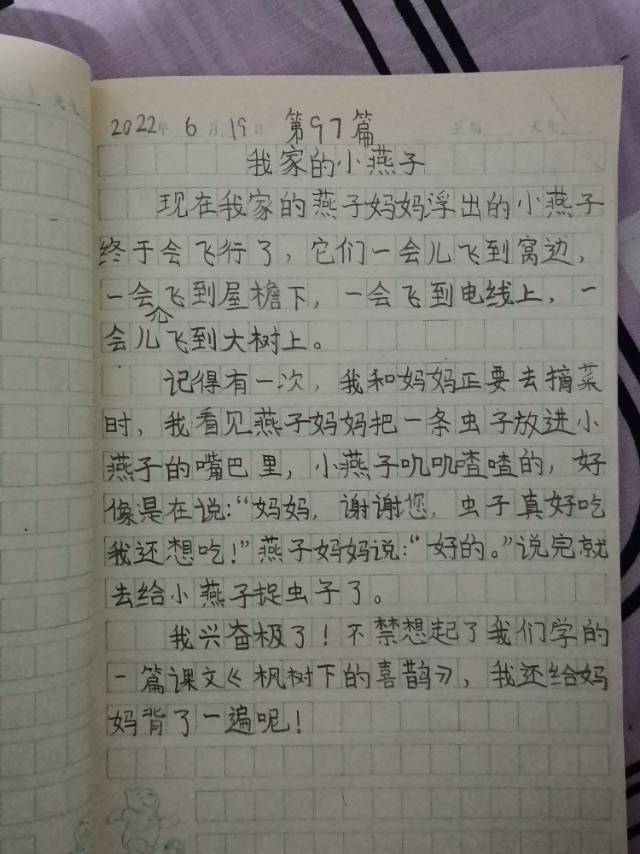 2022年 6月 19日 第97篇
我家的小燕子
现在我家的燕子妈妈浮出的小燕子
终于会飞行了，它们一会儿飞到窝边，
一会飞到屋檐下，一会飞到电线上，一
会儿飞到大树上。
记得有一次，我和妈妈正要去摘菜
时，我看见燕子妈妈把一条虫子放进小
燕子的嘴巴里，小燕子叽叽喳喳的，好
像是在说：“妈妈，谢谢您，虫子真好吃
我还想吃！”燕子妈妈说：“好的。”说完就
去给小燕子捉虫子了。
我兴奋极了！不禁想起了我们学的
一篇课文《枫树下的喜鹊》，我还给妈
妈背了一遍呢！